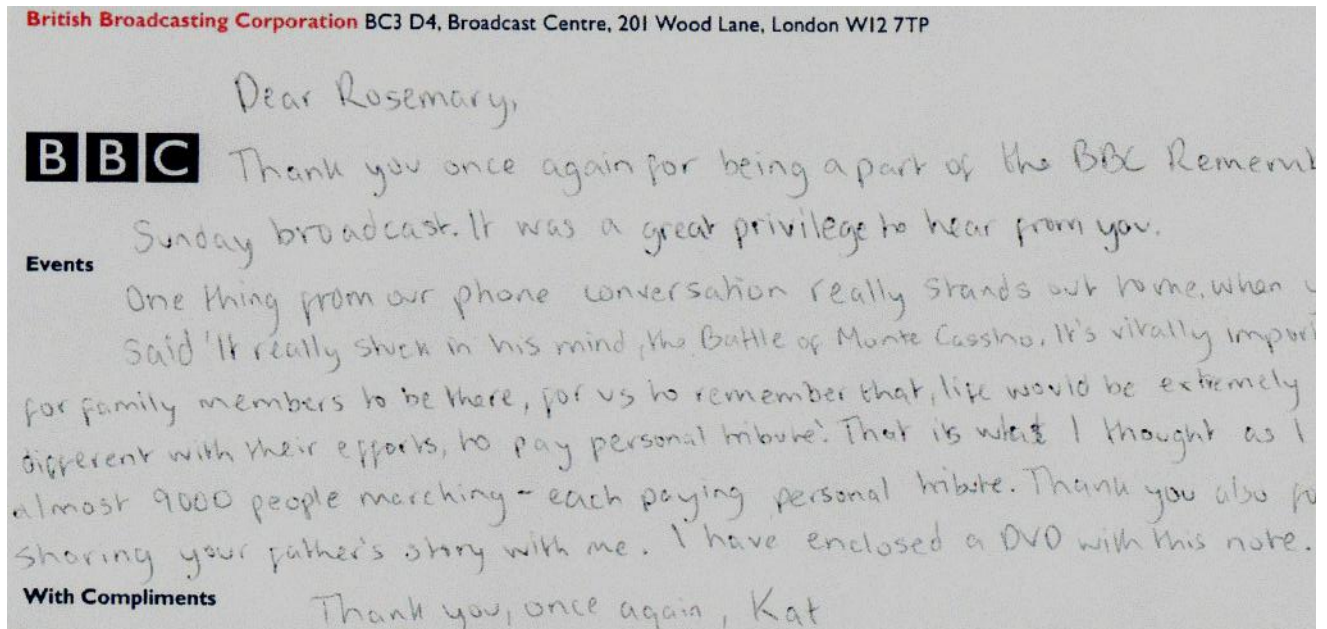 British Broadcasting Corporation BC3 D4, Broadcast Centre, 201 Wood Lane, London W12 7TP
Dear Rosemary,
BBC
Thank you once again for being a part of the BBC Rememb
Sunday broadcast. It was a great privilege to hear from you.
Events
One thing from our phone conversation really stands out to me, when
said 'It really stuck in his mind, the Battle of Monte Cassino. It's vitally import
for family members to be there, for us to remember that, life would be extremely
different with their efforts, to pay personal tribute'. That is what I thought as I
almost 9000 people marching - each paying personal tribute. Thank you also fo
sharing your father's story with me. I have enclosed a DVD with this note.
With Compliments
Thank you, once again, Kat